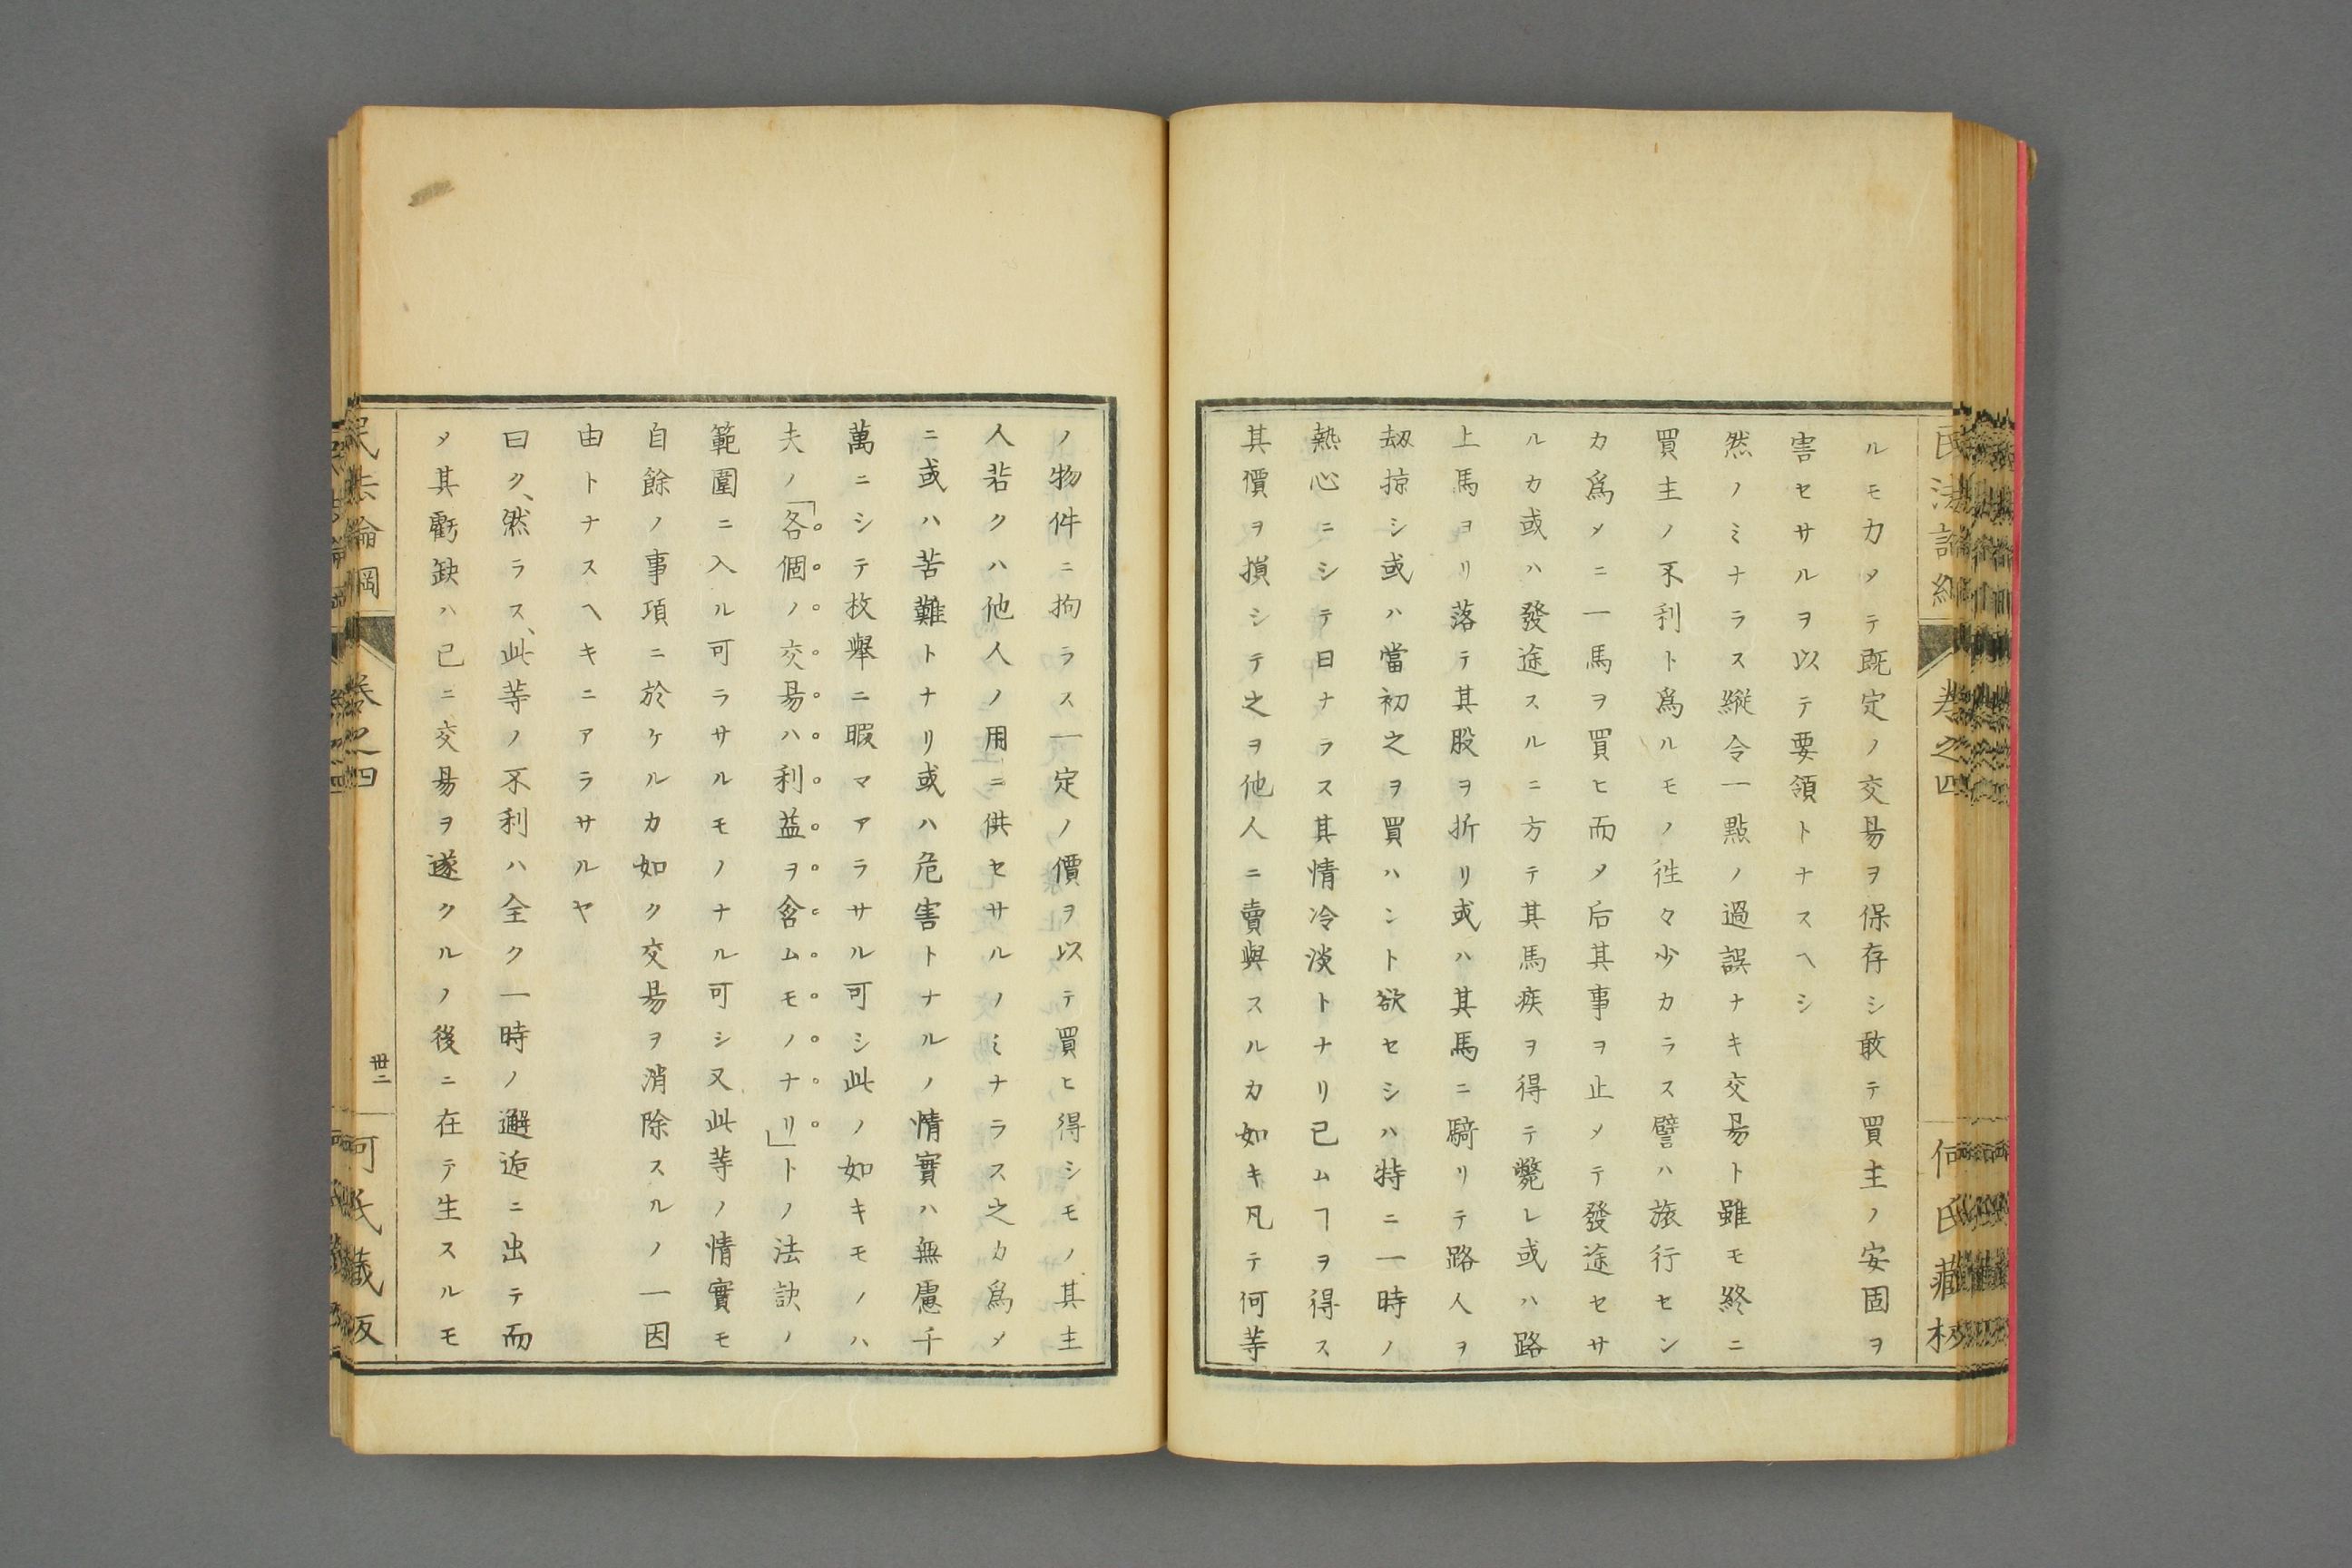 民法論綱
卷之四
何氏藏板
ルモカメテ既定ノ交易ヲ保存シ敢テ買主ノ安固ヲ
害セサルヲ以テ要領トナスヘシ
然ノミナラス縱令一點ノ過誤ナキ交易ト雖モ終ニ
買主ノ不利ト爲ルモノ徃々少カラス譬ハ旅行セン
カ爲メニ一馬ヲ買ヒ而メ后其事ヲ止メテ發途セサ
ルカ或ハ發途スルニ方テ其馬疾ヲ得テ斃レ或ハ路
上馬ヨリ落テ其股ヲ折リ或ハ其馬ニ騎リテ路人ヲ
刼掠シ或ハ當初之ヲ買ハント欲セシハ特ニ一時ノ
熱心ニシテ日ナラス其情冷淡トナリ已ムヿヲ得ス
其價ヲ損シテ之ヲ他人ニ賣與スルカ如キ凡テ何等
ノ物件ニ拘ラス一定ノ價ヲ以テ買ヒ得シモノ其主
人若クハ他人ノ用ニ供セサルノミナラス之カ爲メ
ニ或ハ苦難トナリ或ハ危害トナルノ情實ハ無慮千
萬ニシテ枚舉ニ暇マアラサル可シ此ノ如キモノハ
夫ノ「各個ノ交易ハ利益ヲ含ムモノナリ」トノ法訣ノ
範圍ニ入ル可ラサルモノナル可シ又此等ノ情實モ
自餘ノ事項ニ於ケルカ如ク交易ヲ消除スルノ一因
由トナスヘキニアラサルヤ
曰ク、然ラス、此等ノ不利ハ全ク一時ノ邂逅ニ出テ而
メ其虧缺ハ已ニ交易ヲ遂クルノ後ニ在テ生スルモ
民法論綱
卷之四
卌二
何氏藏板